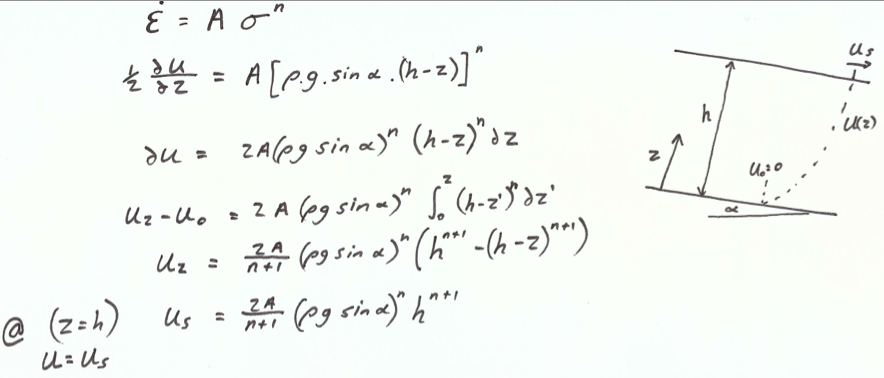 ε̇ = A σⁿ
½ ∂u/∂z = A[ρ.g.sin α.(h-z)]ⁿ
∂u = 2A(ρg sin α)ⁿ (h-z)ⁿ ∂z
u_z - u_o = 2 A (ρg sin α)ⁿ ∫₀ᶻ (h-z')ⁿ ∂z'
u_z = 2A/n+1 (ρg sin α)ⁿ (hⁿ⁺¹ - (h-z)ⁿ⁺¹)
@ (z=h) u_s = 2A/n+1 (ρg sin α)ⁿ hⁿ⁺¹
u = u_s
u_s
h
u(z)
z
u_o=0
α